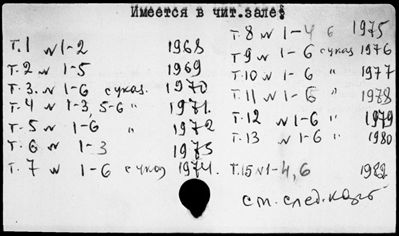 Имеется в чит.зале
т.1 № 1-2 1968
т.2 № 1-5 1969
т.3. № 1-6 с указ. 1970
т.4 № 1-3, 5-6 " 1971.
т.5 № 1-6 " 1972
т.6 № 1-3 1973
т.7 № 1-6 с указ 1974.
т.8 № 1-4 6 1975
т.9 № 1-6 с указ 1976
т.10 № 1-6 " 1977
т.11 № 1-6 " 1978
т.12 № 1-6 " 1979
т.13 № 1-6 " 1980
т.15 № 1-4, 6 1982
см. след.